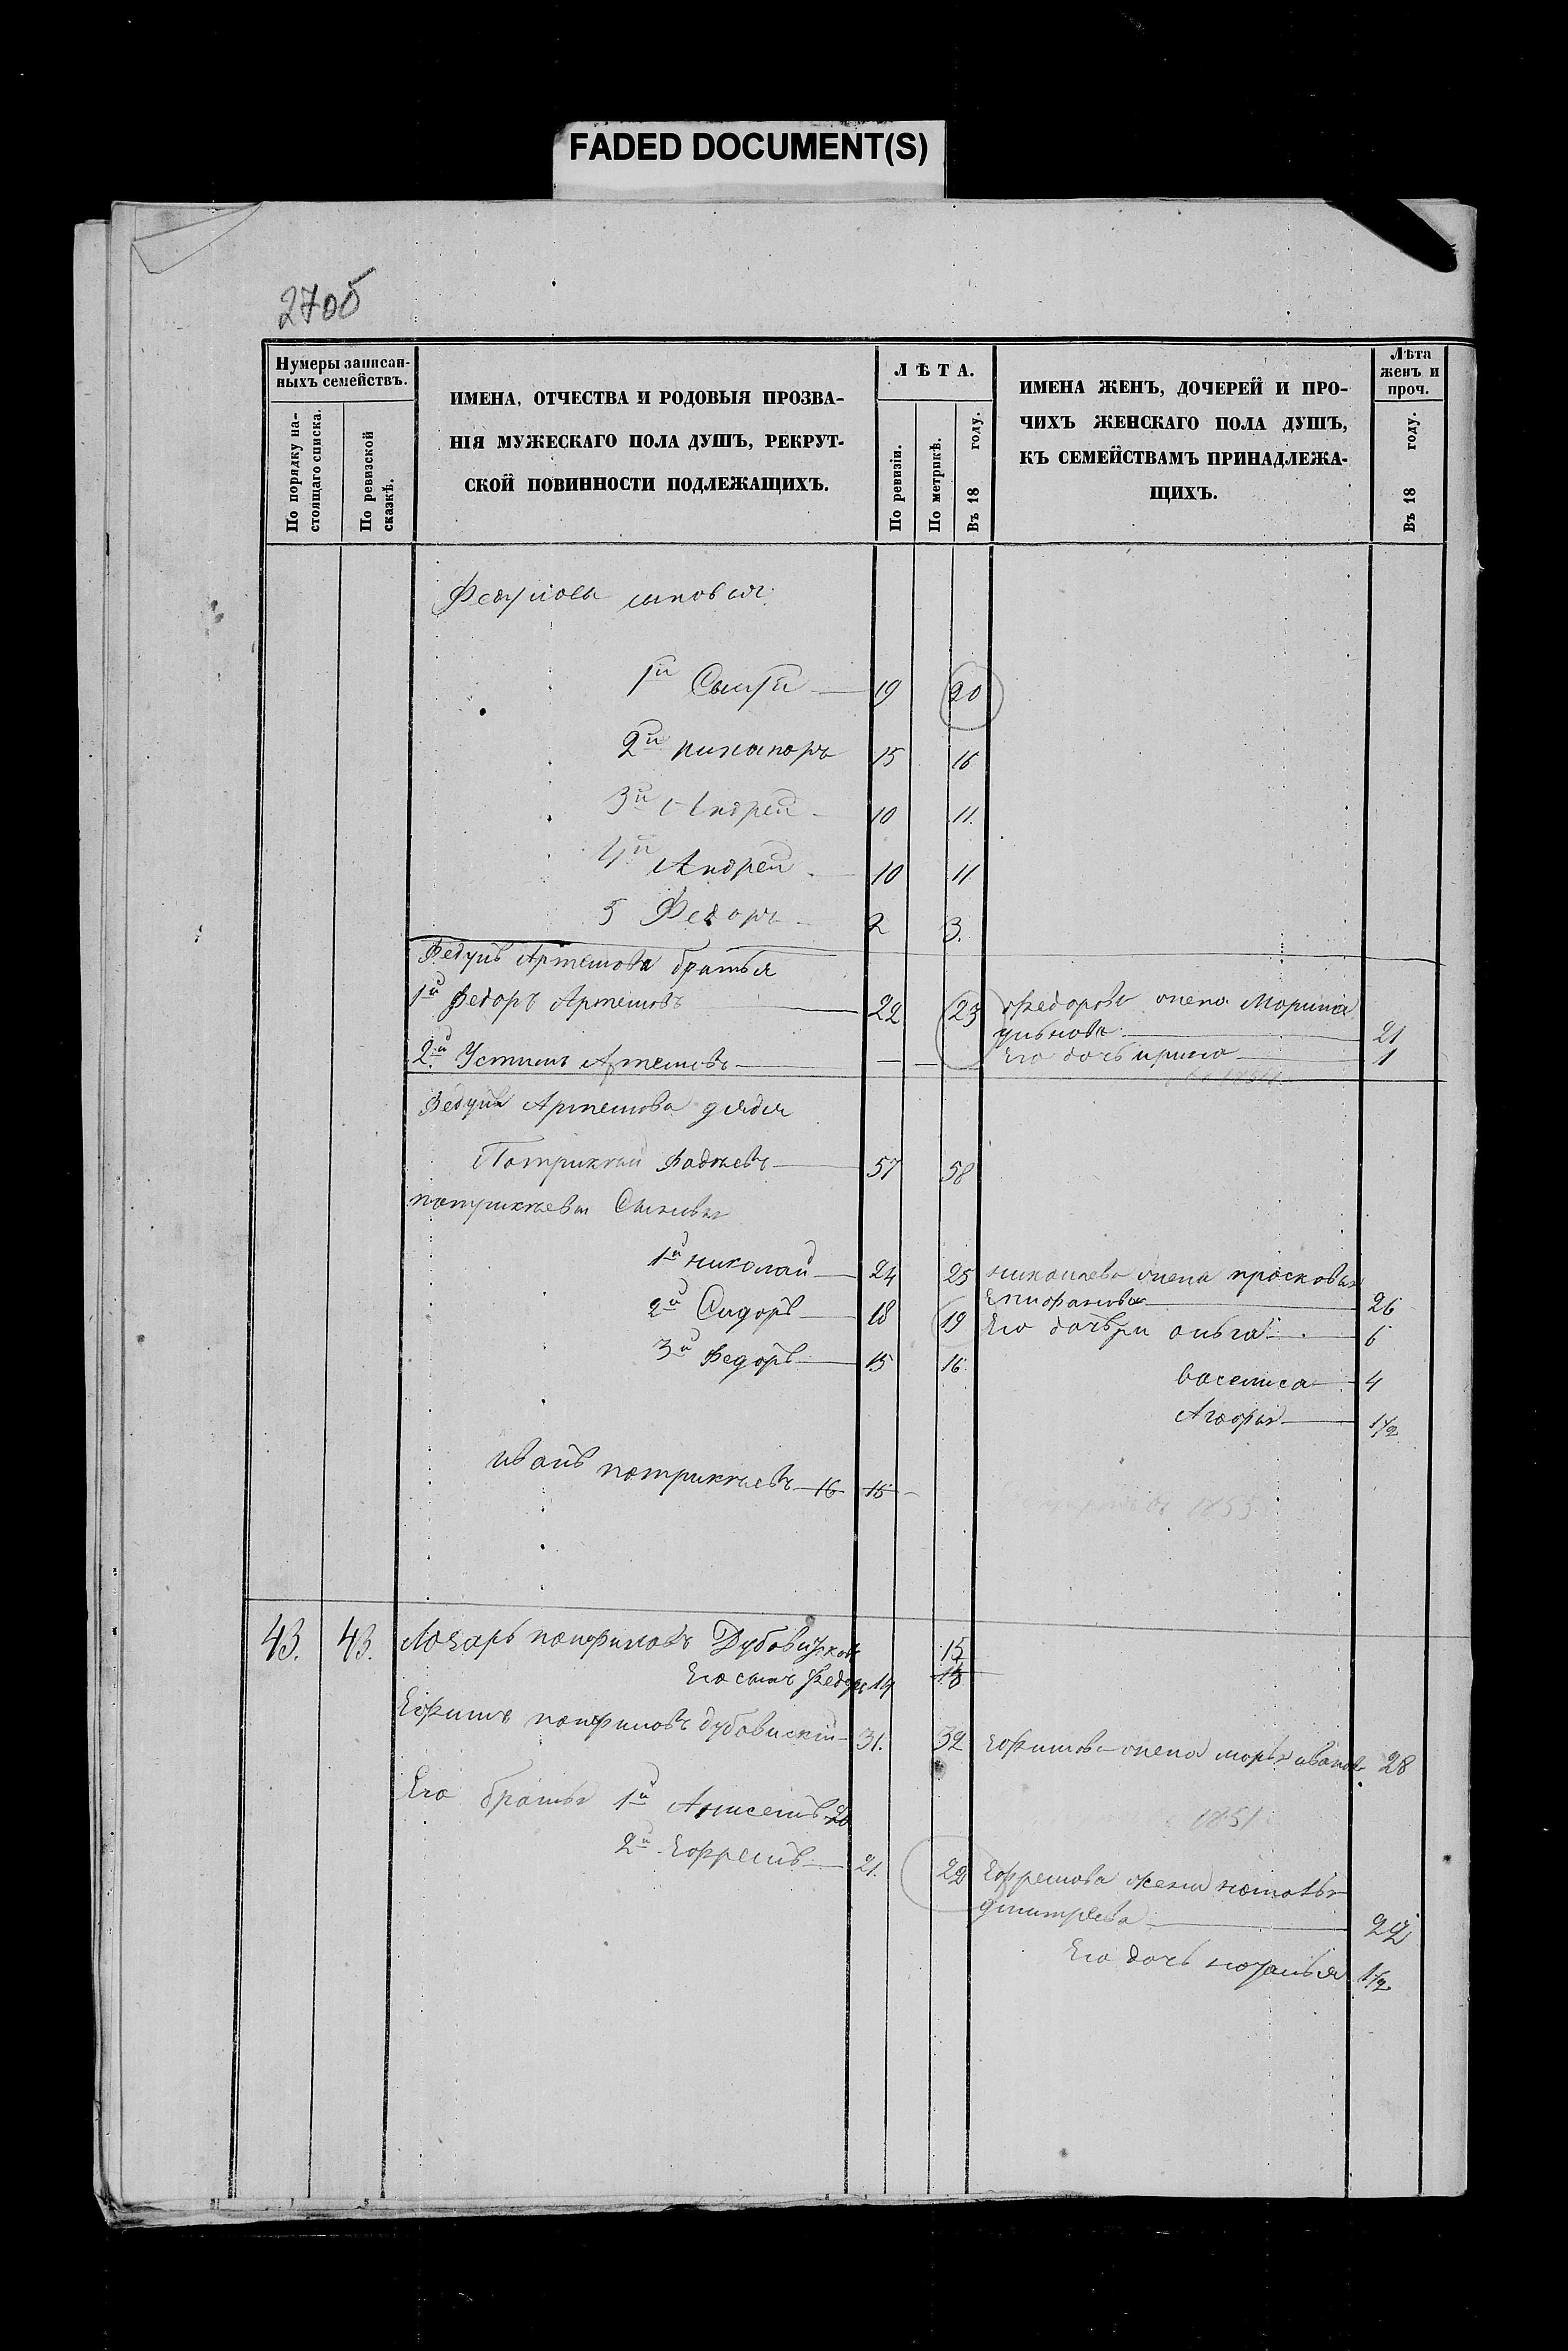 FADED DOCUMENT(S)
2700
Нумеры записан-
ныхъ семействъ.
По порядку на-
стоящаго списка.
По ревизской
сказкѣ.
ИМЕНА, ОТЧЕСТВА И РОДОВЫЯ ПРОЗВА-
НІЯ МУЖЕСКАГО ПОЛА ДУШЪ, РЕКРУТ-
СКОЙ ПОВИННОСТИ ПОДЛЕЖАЩИХЪ.
ЛѢТА.
По ревизіи.
По метрикѣ.
Въ 18 году.
ИМЕНА ЖЕНЪ, ДОЧЕРЕЙ И ПРО-
ЧИХЪ ЖЕНСКАГО ПОЛА ДУШЪ,
КЪ СЕМЕЙСТВАМЪ ПРИНАДЛЕЖА-
ЩИХЪ.
Лѣта
женъ и
проч.
Въ 18 году.
сыновья
1й 19 20
2й никаноръ 15 16
3й Андрей 10 11.
4й Андрей 10 11
5 Федоръ 2 3.
Артемова братья
1й Федоръ Артемовъ 22 23 Федорова жена Марина
21
2.й Устинъ Артемовъ — — Его дочь ирина 1
Артемова дядя
Патрикѣй Фадѣевъ 57 58
патрикѣева Сыновья
1й николай 24 25 николаева жена прасковья
Епифанова 26
2й Сидоръ 18 19 Его дочъри ольга 6
3й Федоръ 15 16.
василиса 4
Агафья 1½
иванъ патрикѣевъ 16 15
1855
43. 43. Лазарь панфиловъ 15
Его сынъ Федоръ 14 18
Ефимъ панфиловъ дубовискій 31. 32 Ефимова жена марья иванова 28
Его братья 1й 20
1851
2й Ефремъ 21. 22 Ефремова жена наталья
дмитрева 22
Его дочь наталья 1½